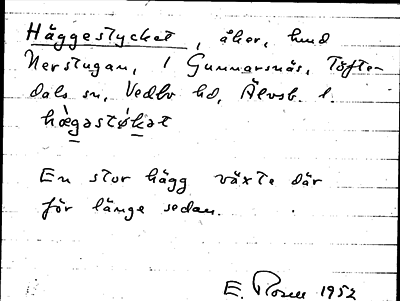 Häggestycket, åker, hmd
Nerstugan, 1 Gunnarsnäs, Töfte-
dals sn, Vedbo hd, Älvsb. l.
hæ̀gəstýkət
En stor hägg växte där
för länge sedan.
E. Rosell 1952